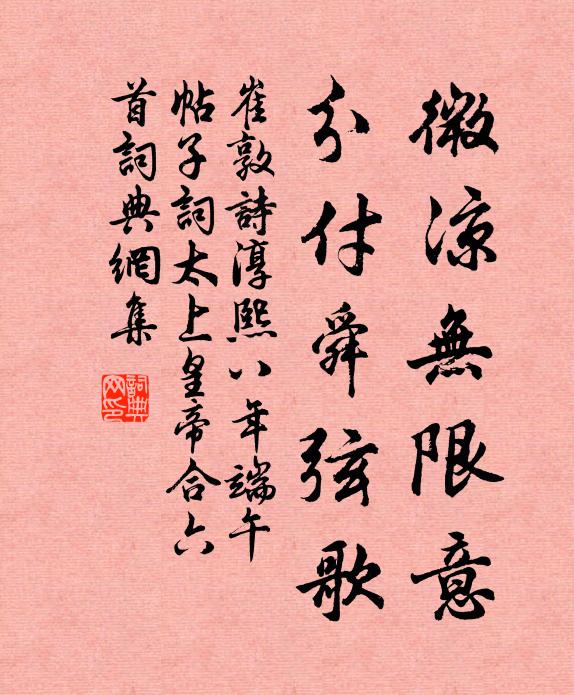 微涼無限意
分付舜弦歌
崔敦詩淳熙八年端午
帖子詞太上皇帝合六
首詞典網集
詞典网印